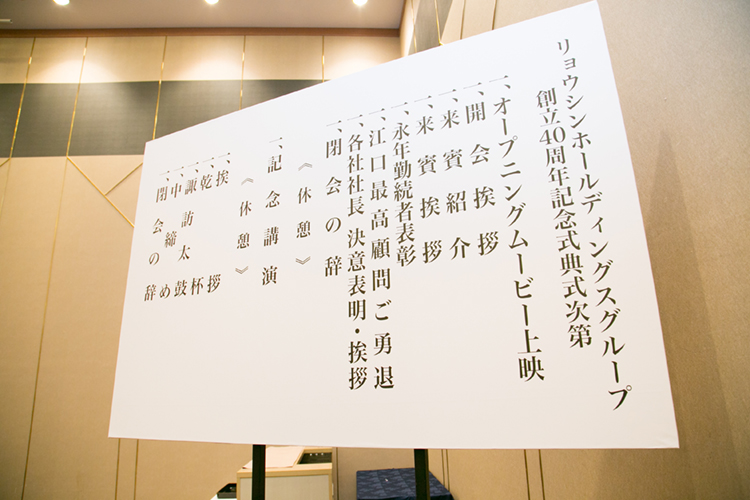 リョウシンホールディングスグループ
創立40周年記念式典式次第
一、オープニングムービー上映
一、開会挨拶
一、来賓紹介
一、来賓挨拶
一、永年勤続者表彰
一、江口最高顧問ご勇退
一、各社社長 決意表明・挨拶
一、閉会の辞
《休憩》
一、記念講演
《休憩》
一、挨拶
一、乾杯
一、諏訪太鼓
一、中締め
一、閉会の辞